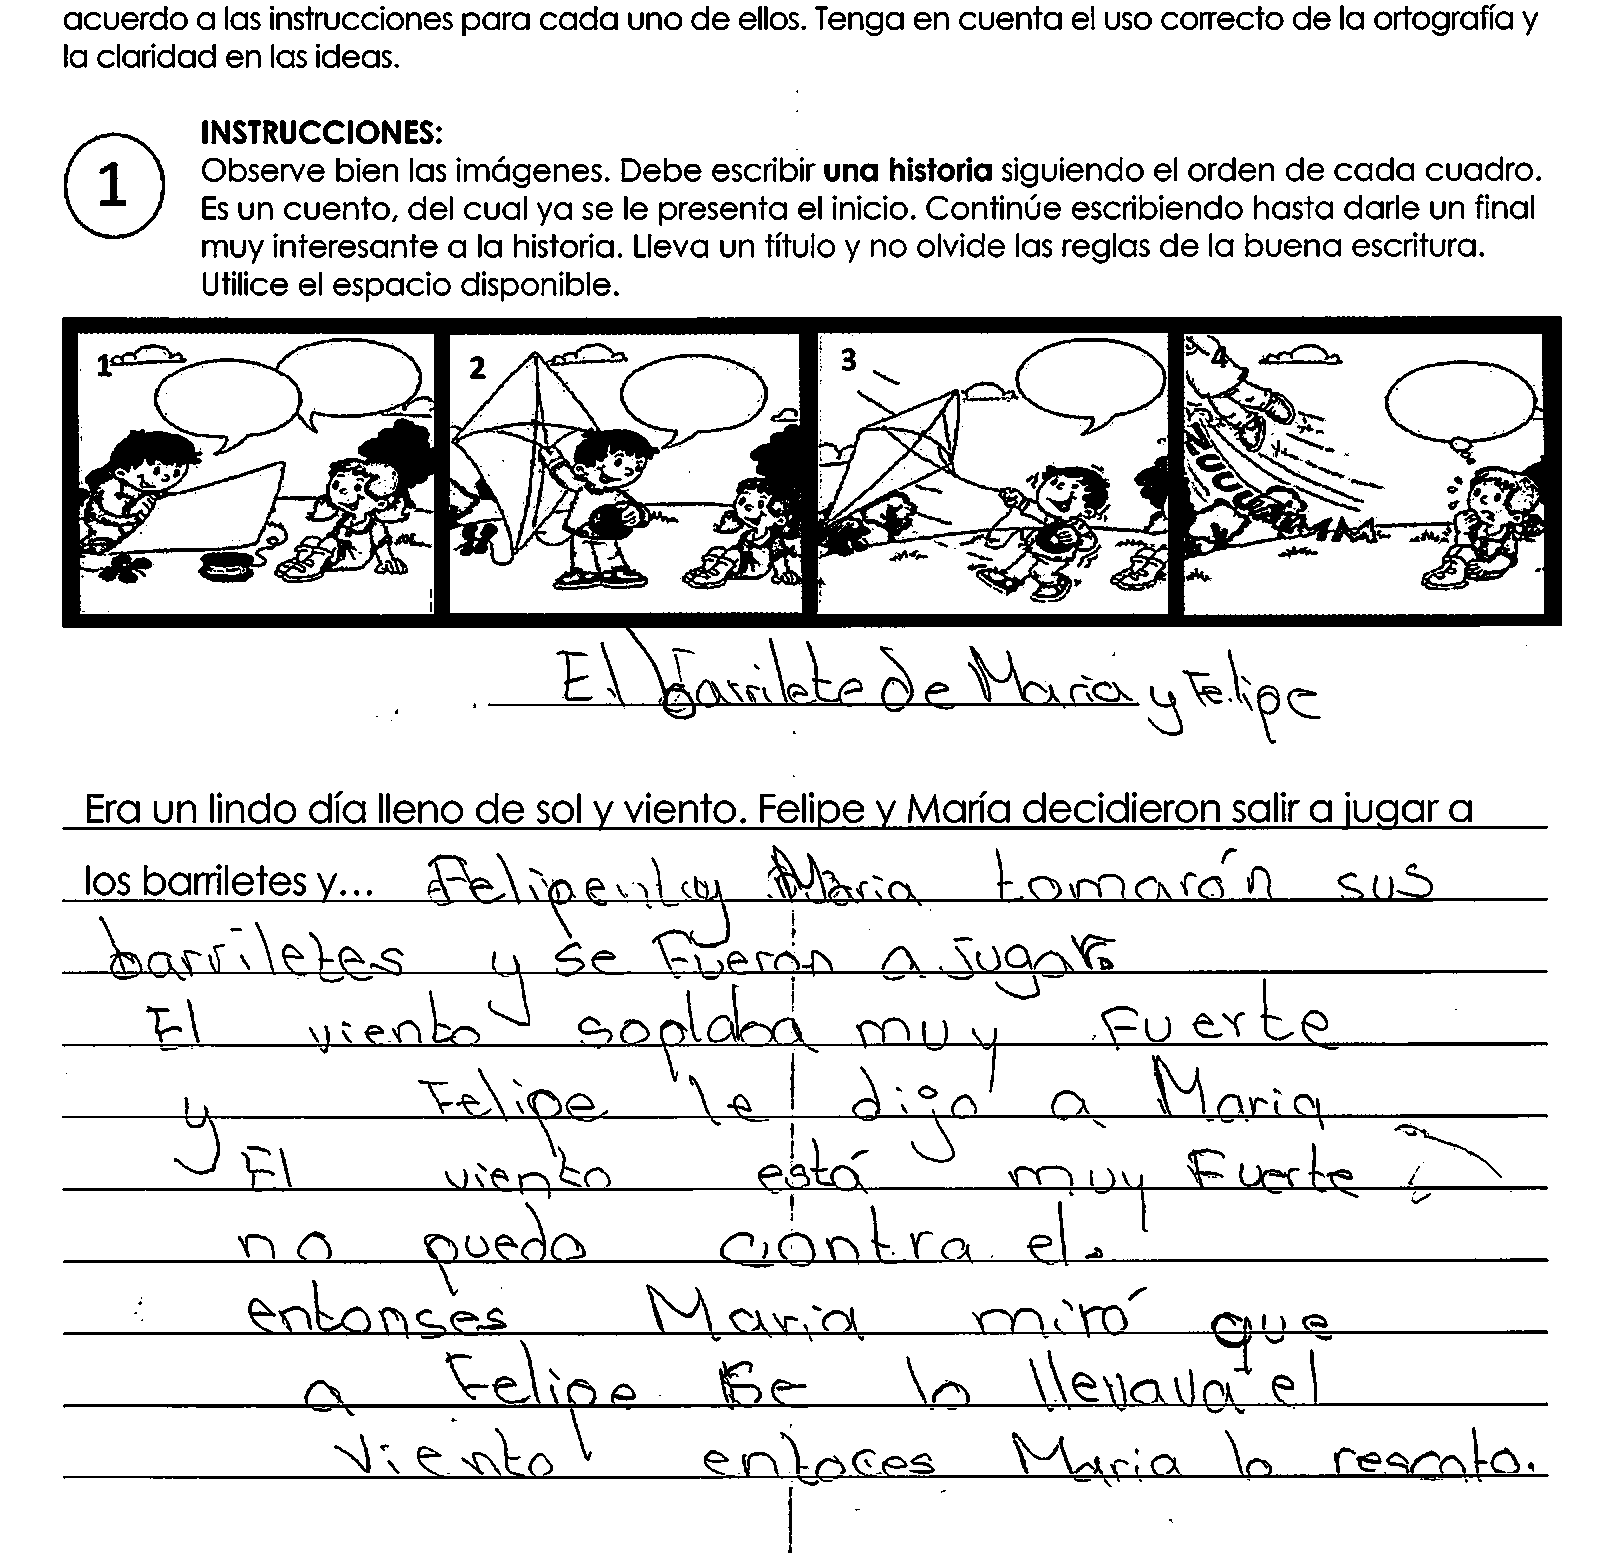 acuerdo a las instrucciones para cada uno de ellos. Tenga en cuenta el uso correcto de la ortografía y
la claridad en las ideas.
1
INSTRUCCIONES:
Observe bien las imágenes. Debe escribir una historia siguiendo el orden de cada cuadro.
Es un cuento, del cual ya se le presenta el inicio. Continúe escribiendo hasta darle un final
muy interesante a la historia. Lleva un título y no olvide las reglas de la buena escritura.
Utilice el espacio disponible.
1 2 3 4
El barrilete de Maria y Felipe
Era un lindo día lleno de sol y viento. Felipe y María decidieron salir a jugar a
los barriletes y... Felipe y Maria tomarón sus
barriletes y se Fuerón a jugar.
El viento soplaba muy Fuerte
y Felipe le dijo a Maria
El viento está muy Fuerte
no puedo contra el.
entonses Maria miró que
a Felipe se lo llevava el
viento entoces Maria lo rescato.